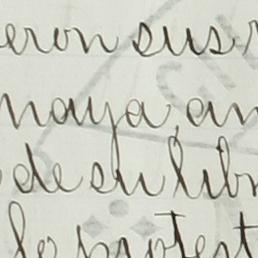 eron sus
naya, an
de su libr
lo protest